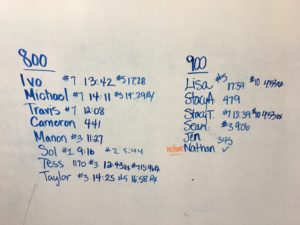 800
Ivo #7 13:42 #5 17:28
Michael #7 14:11 #5 19:29 RX
Travis #7 12:08
Cameron 441
Manon #3 11:27
Sol #1 9:16 #2 5:44
Tess 1170 #3 12:43
Taylor #3 14:25 #5 16:58 RX
900
Lisa #5 17:59
Stacy A. 479
Stacy T. #7 12:39
Sean #3 9:06
Jen 345
Nathan ✓